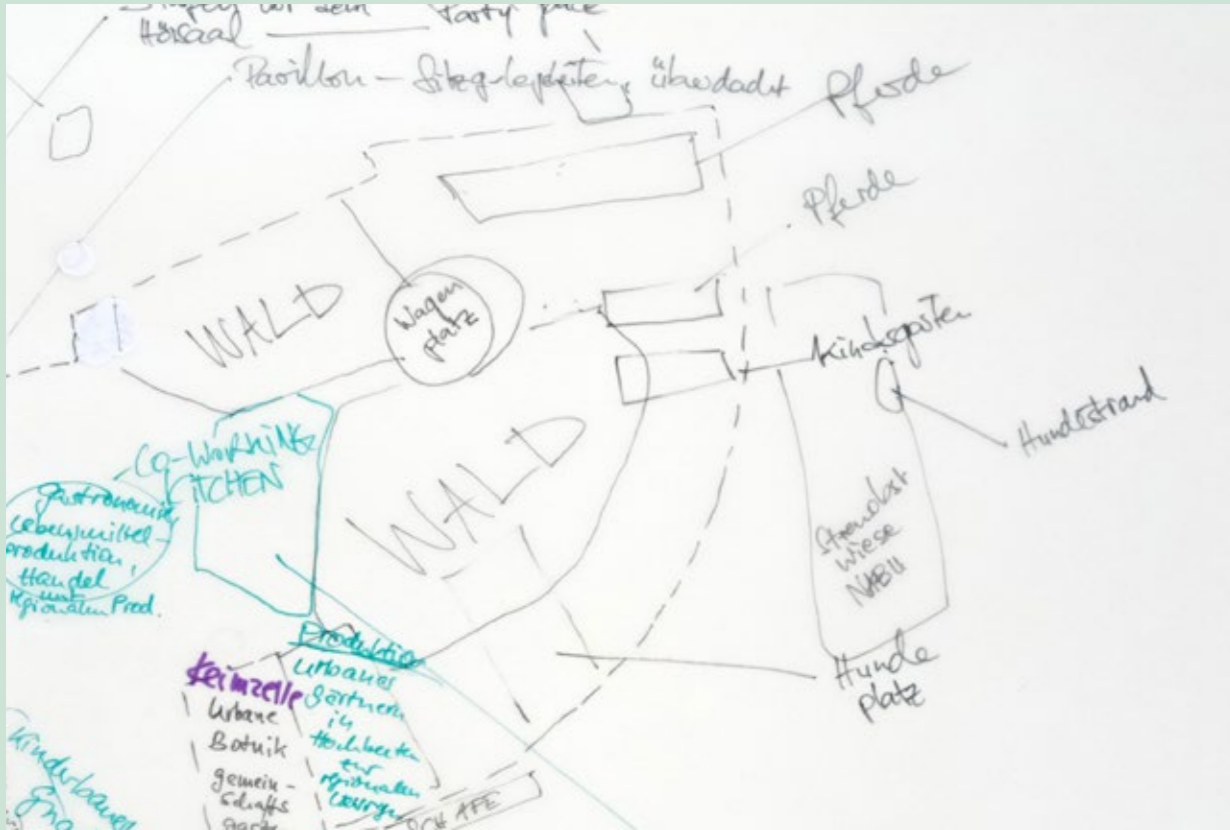 Hörsaal
Party
Pavillon – Sitzgelegenheiten, überdacht
Pferde
Pferde
WALD
Wagen
platz
Kindergarten
Hundestrand
CO-WORKING
KITCHEN
gastronomie
Lebensmittel-
produktion,
Handel
mit
regionalen Prod.
WALD
Streuobst
wiese
NABU
Hunde
platz
Produktion
urbanes
Gärtnern
in
Hochbeeten
zur
regionalen
Keimzelle
Urbane
Botnik
gemein-
schafts
SCHAFE
Kinderbauern